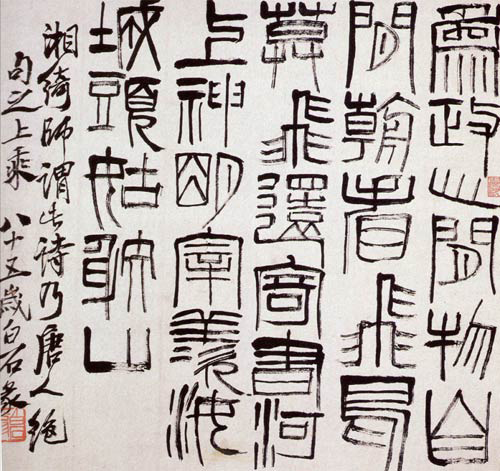 為政心閒物自
閒朝看飛鳥
莫飛還寄書河
上神明宰羨池
城頭姑射山
湘綺師謂此詩乃唐人絕
句之上乘 八十五歲白石篆